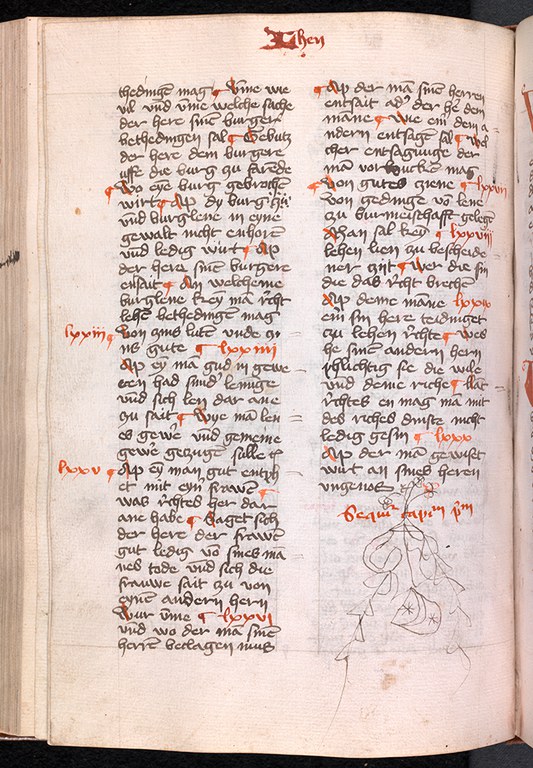 Lhen
thedingen mag ¶ Vme wie
vil vnd vme welche sache
der here sinen burger
bethedingen sal ¶ Gebutz
der here dem burgere
uffe die burg zu farende
¶ Wo eyne burg gebrochen
wirt ¶ Ap dy burg
vnd burglene in eyne
gewalt nicht enhoren
vnd ledig wirt ¶ Ap
der here sinen burgere
ensait ¶ An welcheme
burglene key man recht
lehen bethedingen mag
lxxiii ¶ Von zins luten vnde zi
ns gute ¶ lxxiiii
Ap ey man gud in gewe
ren had sinud leninge
vnd sich len dar ane
zu sait ¶ Wye man len
es gewe vnd gemeine
gewe gezuge sulle
lxxv ¶ Ap ey man gut entph
et mit eyn frawen ¶
was rechtes her dar
ane habe ¶ Saget sich
der here der frawen
gut ledig von sines ma
nes tode vnd sich die
frauwe sait zu von
eynen andern hern
Wur vme ¶ lxxvi
vnd wo der man sinen
herren beclagen mus
¶ Ap der man sinen herren
entsait ader der he dem
manne ¶ Wie ein dem a
ndern entsagen sal ¶ Wel
cher entsagunge der
man vorkucken mag
¶ Von gutes ziene ¶ lxxvii
Von gedinge von lene
zu burmeischafft gelegen
Man sal key ¶ lxxviii
lehen lien zu bescheide
ner zyit ¶ Wer die sin
die das recht brechen
Ap deme manne lxxix
ein sin here teidinget
zu lehen rechte ¶ Wes
he sinen andern hern
phlichtig sie die wile
vnd deme riche ¶ Nat
rechtes en mag man mit
des riches dinste nicht
ledig gesin ¶ lxxx
Ap der man gewiset
wirt an sines heren
ungenos
Sequitur capitulum primum